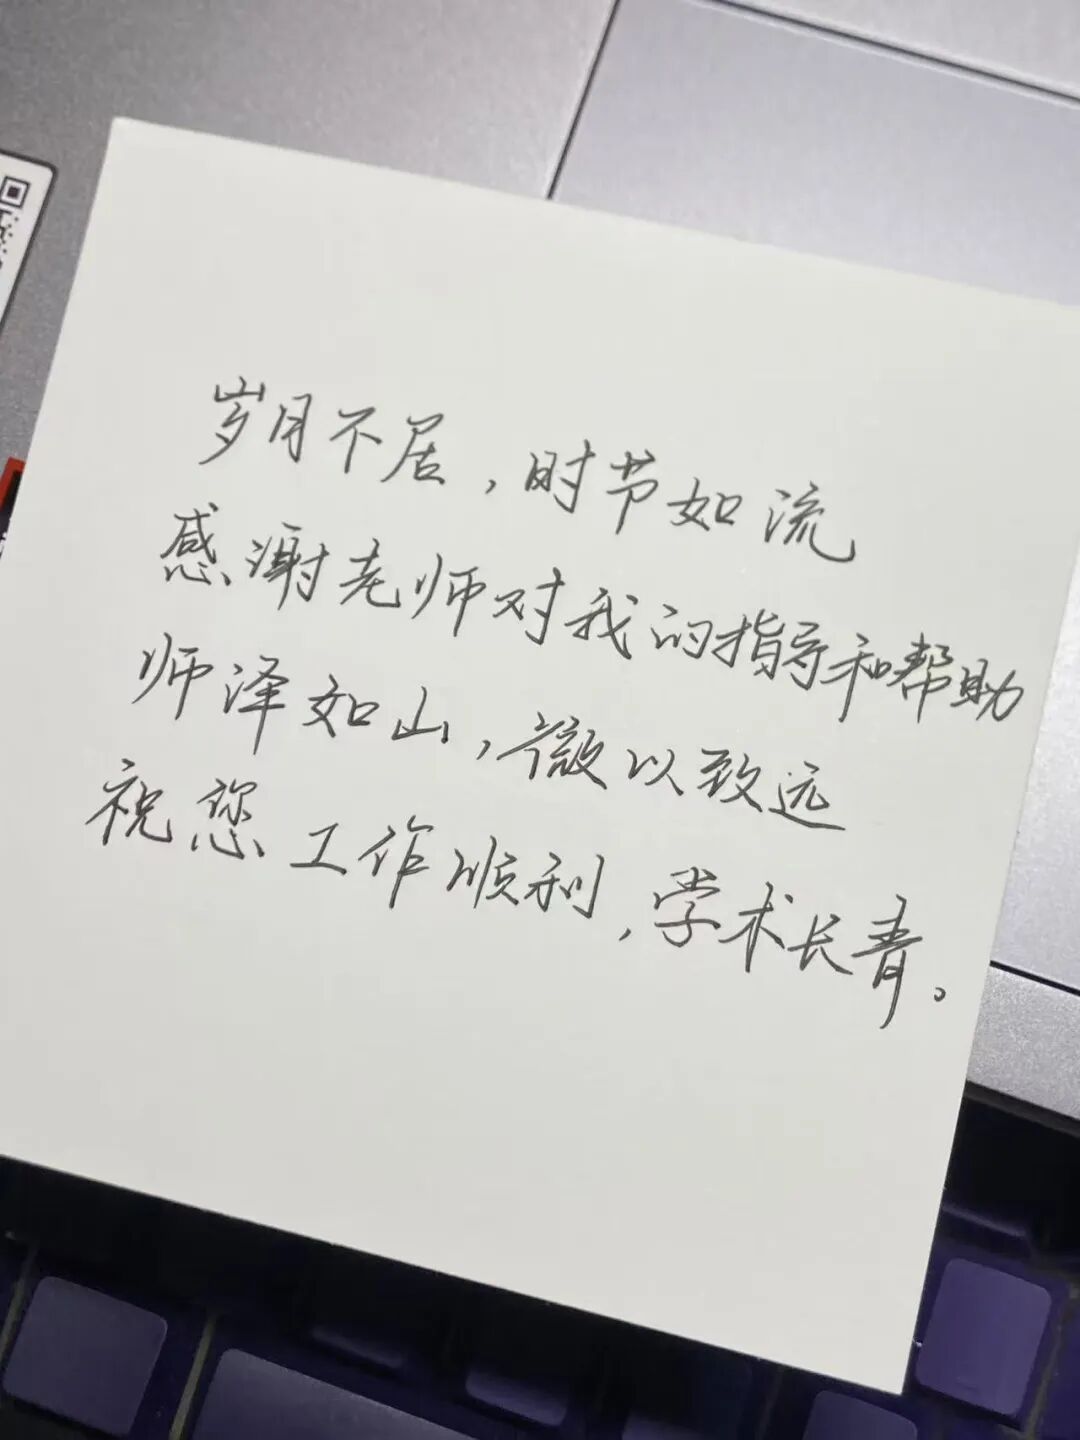 岁月不居，时节如流
感谢老师对我的指导和帮助
师泽如山，微以致远
祝您工作顺利，学术长青。